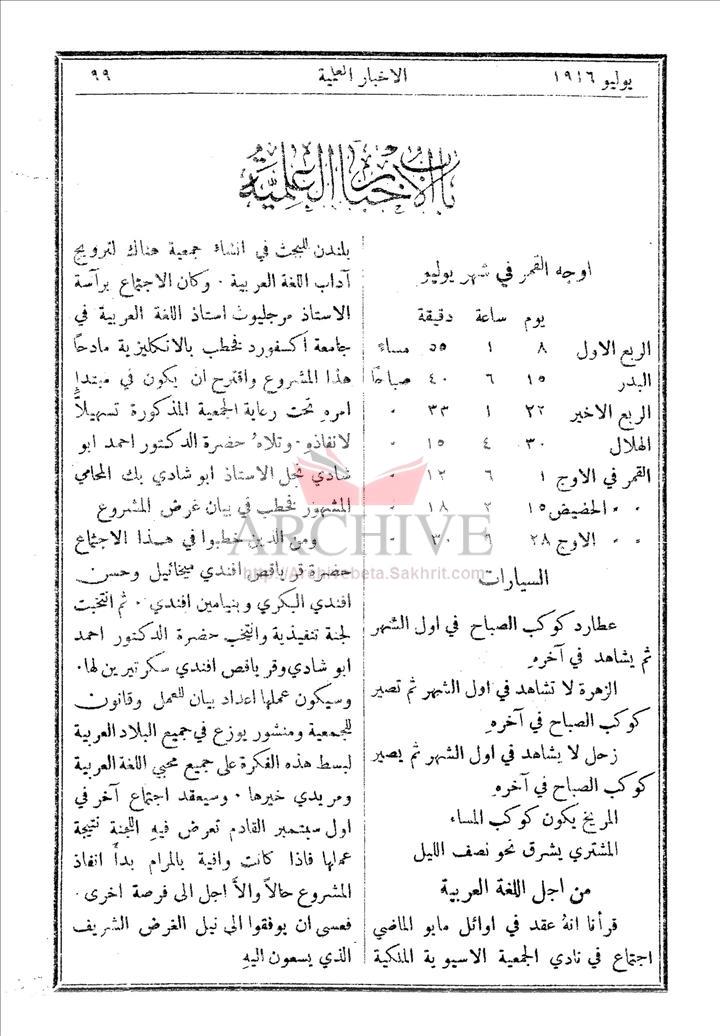 يوليو ١٩١٦
الاخبار العلمية
٩٩
باب الاخبار العلمية
اوجه القمر في شهر يوليو
يوم ساعة دقيقة
الربع الاول ٨ ١ ٥٥ مساءً
البدر ١٥ ٦ ٤٠ صباحًا
الربع الاخير ٢٢ ١ ٣٣ "
الهلال ٣٠ ٤ ١٥ "
القمر في الاوج ١ ٦ ١٢ "
" " الحضيض ١٥ ٢ ١٨ "
" " الاوج ٢٨ ٩ ٣٠ "
السيارات
عطارد كوكب الصباح في اول الشهر
ثم يشاهد في آخرهِ
الزهرة لا تشاهد في اول الشهر ثم تصير
كوكب الصباح في آخرهِ
زحل لا يشاهد في اول الشهر ثم يصير
كوكب الصباح في آخرهِ
المريخ يكون كوكب المساء
المشتري يشرق نحو نصف الليل
من اجل اللغة العربية
قرأنا انهُ عقد في اوائل مايو الماضي
اجتماع في نادي الجمعية الاسيوية الملكية
بلندن للبحث في انشاء جمعية هناك لترويج
آداب اللغة العربية . وكان الاجتماع برآسة
الاستاذ مرجليوث استاذ اللغة العربية في
جامعة اكسفورد فخطب بالانكليزية مادحًا
هذا المشروع واقترح ان يكون في مبتدإِ
امرهِ تحت رعاية الجمعية المذكورة تسهيلاً
لانفاذه . وتلاهُ حضرة الدكتور احمد ابو
شادي نجل الاستاذ ابو شادي بك المحامي
المشهور فخطب في بيان غرض المشروع
ومن الذين خطبوا في هذا الاجتماع
حضرة قرياقص افندي ميخائيل وحسن
افندي البكري و بنيامين افندي . ثم انتخبت
لجنة تنفيذية وانتخب حضرة الدكتور احمد
ابو شادي وقرياقص افندي سكرتيرين لها .
وسيكون عملها اعداد بيان للعمل وقانون
للجمعية ومنشور يوزع في جميع البلاد العربية
لبسط هذه الفكرة على جميع محبي اللغة العربية
ومريدي خيرها . وسيعقد اجتماع آخر في
اول سبتمبر القادم تعرض فيهِ اللجنة نتيجة
عملها فاذا كانت وافية بالمرام بدأ انفاذ
المشروع حالاً والاَّ اجل الى فرصة اخرى .
فعسى ان يوفقوا الى نيل الغرض الشريف
الذي يسعون اليهِ
ARCHIVE
http://Archivebeta.Sakhrit.com